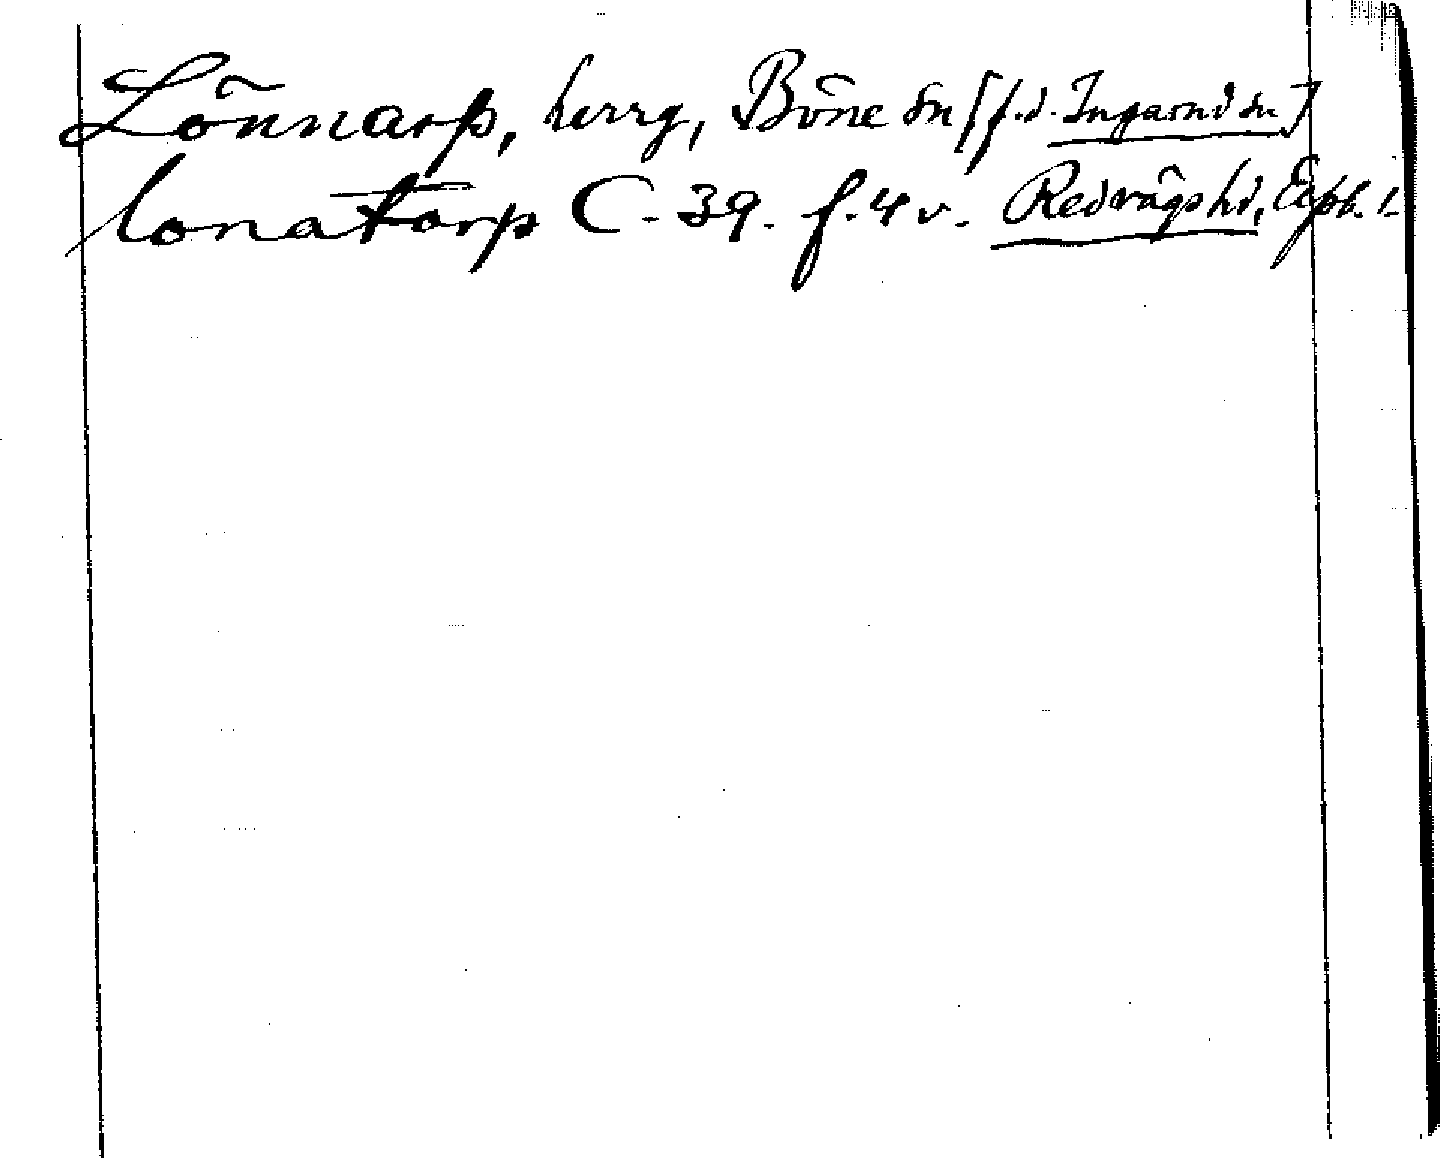 Lönnarp, herrg, Böne sn [f.d. Ingarnd sn]
lonatorp C-39. f. 4 v. Redvägs hd, Elfsb. l.